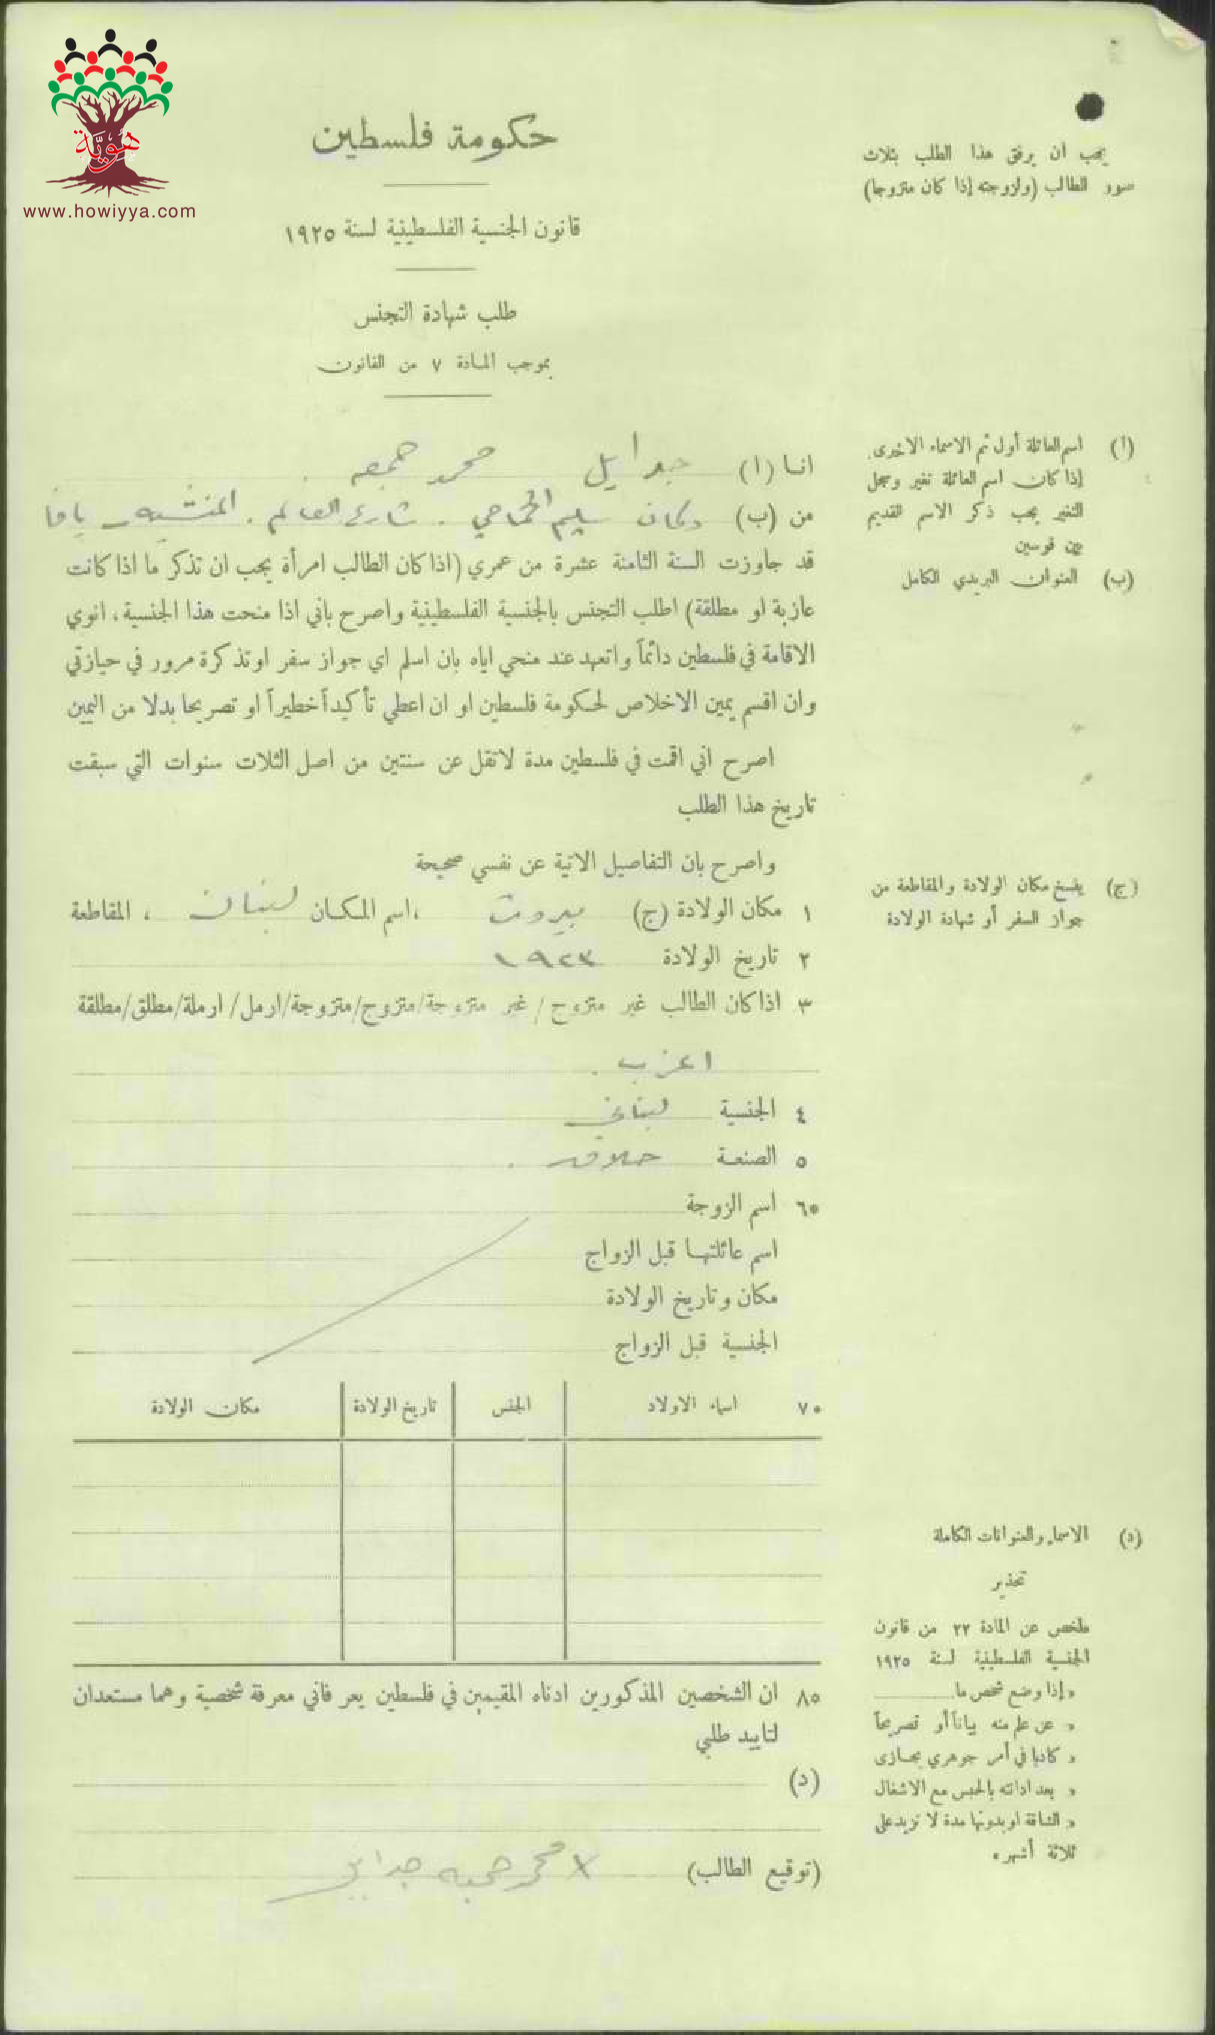 هوية
www.howiyya.com
حكومة فلسطين
يجب ان يرفق هذا الطلب بثلاث
صور الطالب (ولزوجته إذا كان متزوجا)
قانون الجنسية الفلسطينية لسنة ١٩٢٥
طلب شهادة التجنس
بموجب المادة ٧ من القانون
(أ) اسم العائلة أول ثم الاسماء الاخرى.
إذا كان اسم العائلة تغير وسجل
التغير يجب ذكر الاسم القديم
بين قوسين
(ب) العنوان البريدي الكامل
انا (ا) محمد جمعه
من (ب) دكان سليم . شارع العالم . المنشيه - يافا
قد جاوزت السنة الثامنة عشرة من عمري (اذا كان الطالب امرأة يجب ان تذكر ما اذا كانت
عازبة او مطلقة) اطلب التجنس بالجنسية الفلسطينية واصرح باني اذا منحت هذا الجنسية، انوي
الاقامة في فلسطين دائماً واتعهد عند منحي اياه بان اسلم اي جواز سفر او تذكرة مرور في حيازتي
وان اقسم يمين الاخلاص لحكومة فلسطين او ان اعطي تأكيداً خطيراً او تصريحا بدلا من اليمين
اصرح اني اقمت في فلسطين مدة لاتقل عن سنتين من اصل الثلاث سنوات التي سبقت
تاريخ هذا الطلب
واصرح بان التفاصيل الاتية عن نفسي صحيحة
(ج) ينسخ مكان الولادة والمقاطعة من
جواز السفر أو شهادة الولادة
١ مكان الولادة (ج) بيروت ، اسم المكان لبنان ، المقاطعة
٢ تاريخ الولادة ١٩٢٣
٣ اذا كان الطالب غير متزوج/غير متزوجة/متزوج/متزوجة/ارمل/ارملة/مطلق/مطلقة
اعزب .
٤ الجنسية لبناني
٥ الصنعة حلاق .
٦٥ اسم الزوجة
اسم عائلتها قبل الزواج
مكان وتاريخ الولادة
الجنسية قبل الزواج
٧٥ اسماء الاولاد الجنس تاريخ الولادة مكان الولادة
(د) الاسماء والعنوانات الكاملة
تحذير
ملخص عن المادة ٢٢ من قانون
الجنسية الفلسطينية لسنة ١٩٢٥
« إذا وضع شخص ما
« عن علم منه بياناً أو تصريحاً
« كاذبا في أمر جوهري يجازى
« بعد ادانته بالحبس مع الاشغال
« الشاقة او بدونها مدة لا تزيد على
ثلاثة أشهر»
٨٥ ان الشخصين المذكورين ادناه المقيمين في فلسطين يعرفاني معرفة شخصية وهما مستعدان
لتاييد طلبي
(د)
(توقيع الطالب) محمد جمعه